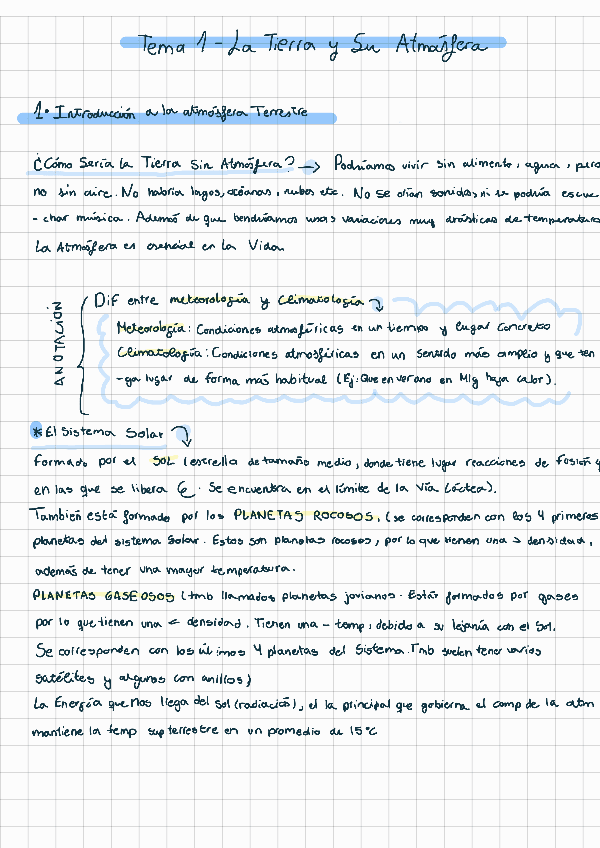 Tema 1 - La Tierra y Su Atmósfera
1. Introducción a la atmósfera Terrestre
¿Cómo Sería la Tierra Sin Atmósfera? → Podríamos vivir sin alimento, agua, pero
no sin aire. No habría lagos, océanos, nubes etc. No se oirían sonidos, ni se podría escu
-char música. Además de que tendríamos unas variaciones muy drásticas de temperatura
La Atmósfera es esencial en la Vida.
ANOTACIÓN
Dif entre meteorología y Climatología
Meteorología: Condiciones atmosféricas en un tiempo y lugar concreto
Climatología: Condiciones atmosféricas en un sentido más amplio y que ten
-ga lugar de forma más habitual (Ej: Que en verano en Mlg haya calor).
* El Sistema Solar
formado por el SOL (estrella de tamaño medio, donde tiene lugar reacciones de fusión
en las que se libera E. Se encuentra en el límite de la Vía Láctea).
También está formado por los PLANETAS ROCOSOS, (se corresponden con los 4 primeros
planetas del sistema Solar. Estos son planetas rocosos, por lo que tienen una > densidad,
además de tener una mayor temperatura.
PLANETAS GASEOSOS (tmb llamados planetas jovianos. Están formados por gases
por lo que tienen una < densidad. Tienen una - temp, debido a su lejanía con el Sol.
Se corresponden con los últimos 4 planetas del Sistema. Tmb suelen tener varios
satélites y algunos con anillos)
La Energía que nos llega del Sol (radiación), el la principal que gobierna el comp de la atm
mantiene la temp sup terrestre en un promedio de 15°C